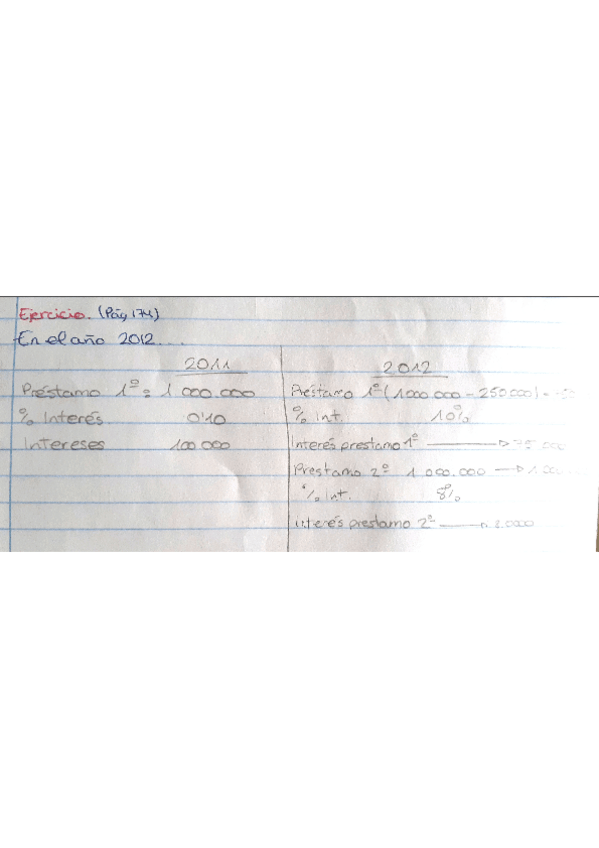 Ejercicio. (Pág 174)
En el año 2012...
2011
Préstamo 1º = 1 000.000
% Interés 0'10
Intereses 100.000
2012
Préstamo 1º (1000.000 - 250.000) =
% Int. 10%
Interés prestamo 1º
Prestamo 2º 1 000.000
% Int. 8%
Interés prestamo 2º 8.0000